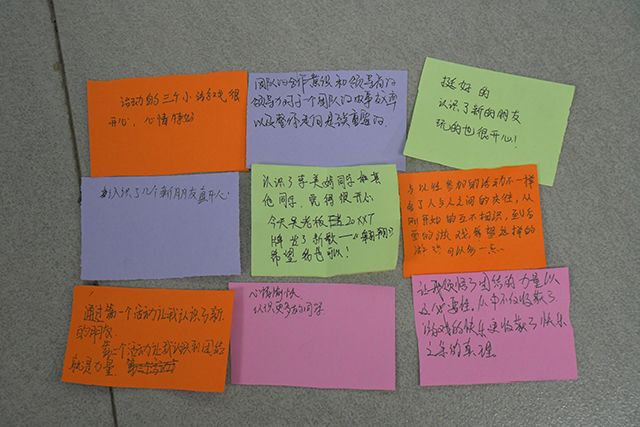 活动的三个小游戏很
开心，心情
团队的合作意识和领导者的
领导力对于一个团队的做事效率
以及整体走向是很重要的。
挺好的
认识了新的朋友
玩的也很开心！
认识了几个新朋友真开心
认识了李美 同学和其
他同学，觉得很开心。
今天吴老板 20XXT
牌出了新歌——《翱翔》
希望
与以往参加的活动不一样
看了人与人之间的关系，从
刚开始的互不相识，到后
面的游戏，希望这样的
游戏可以多一点。
通过第一个活动让我认识了新
的朋友
第二个活动让我认识到团结
就是力量。
心情愉快
认识更多的同学
让我领悟了团结的力量以
及必要性，从中不仅收获了
游戏的快乐更收获了快乐
之余的真理。